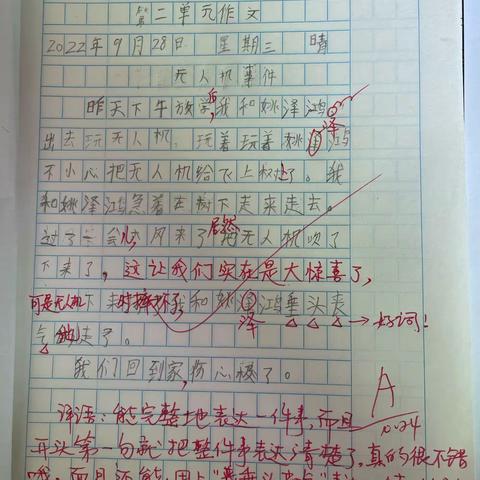 第二单元作文
2022年9月28日 星期三 晴
无人机事件
昨天下午放学后,我和姚泽鸿
泽
出去玩无人机,玩着玩着姚国鸿
不小心把无人机给飞上树上了。我
和姚泽鸿急着在树下走来走去。
过了一会儿风来了居然把无人机吹了
下来了,这让我们实在是大惊喜了,
可是无人机下来时摔坏了我和姚国鸿垂头丧
泽 好词!
气地走了。
我们回到家,伤心极了。
A
10.24
评语:能完整地表达一件事,而且
开头第一句就把整件事表达清楚了,真的很不错
哦,而且还能用上"垂头丧气"